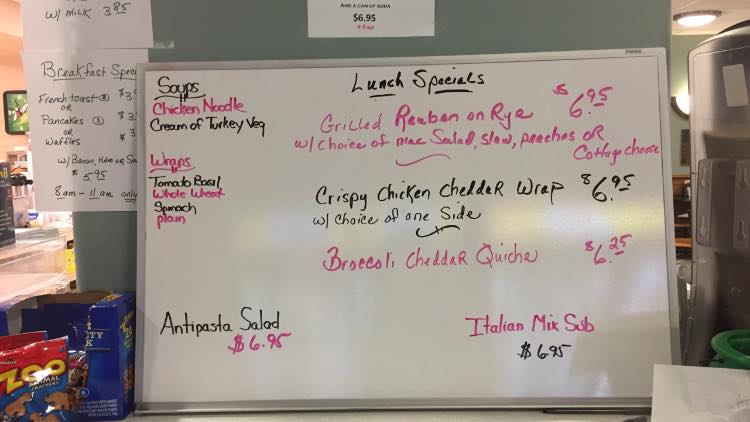 W/ MILK 3.85
AND A CAN OF SODA
$6.95
Breakfast
French toast
OR
Pancakes
OR
Waffles
W/ Bacon, Ham OR
$5.95
8am - 11am only
Soups
Chicken Noodle
Cream of Turkey Veg
Wraps
Tomato Basil
Whole Wheat
Spinach
plain
Lunch Specials
Grilled Reuben on Rye $6.95
w/ choice of mac Salad, slaw, peaches OR
Cottage cheese
Crispy Chicken Cheddar Wrap $6.95
w/ choice of one Side
Broccoli Cheddar Quiche $6.25
Antipasta Salad
$6.95
Italian Mix Sub
$6.95
ZOO
ANIMAL
CRACKERS